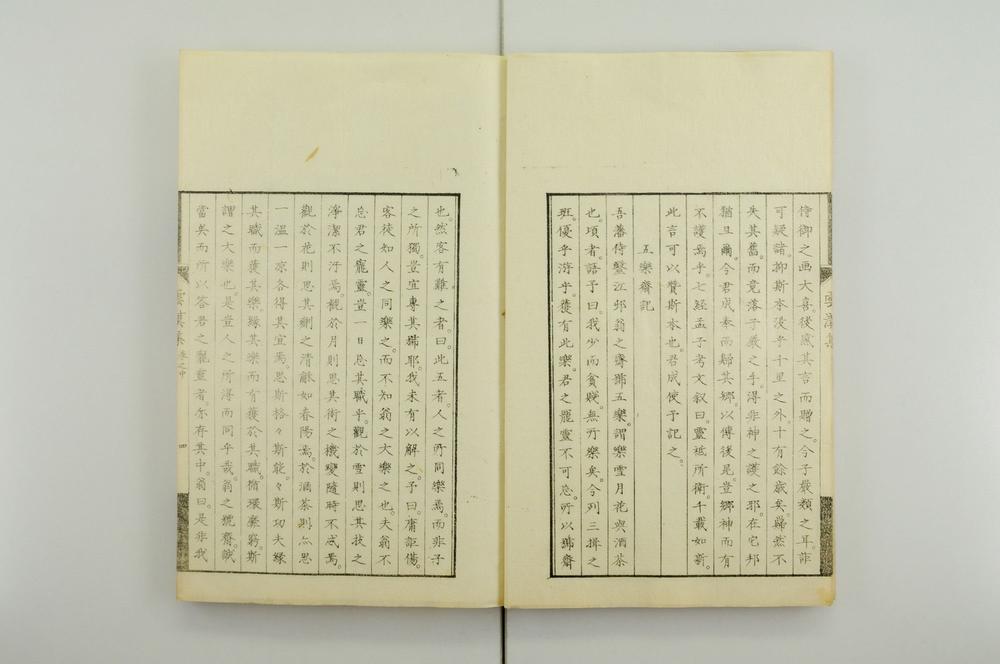 侍御之画大喜。後感其言而贈之。今子嚴類之耳。詐
可疑諸。抑斯本沒乎十里之外。十有餘歲矣。歸然不
失其舊。而竟落子羲之手。得非神之護之邪。在它邦
猶且爾。今君成奉而歸其鄉。以傳後昆。豈鄉神而有
不護焉乎。七經孟子考文叙曰。靈祗所衛。千載如新。
此言可以贊斯本也。君成使予記之。
五樂齋記
吾藩侍醫江邨翁之齋號五樂。謂樂雪月花與酒茶
也。頃者。語予曰。我少而貧賤。無所樂矣。今列三揖之
班。優乎游乎。獲有此樂。君之寵靈不可忘。所以號齋
也。然客有難之者。曰此五者。人之所同樂焉。而非子
之所獨。豈宜專其號耶。我未有以解之。予曰。庸詎傷。
客徒知人之同樂之。而不知翁之大樂之也。夫翁不
忘君之寵靈。豈一日忘其職乎。觀於雪則思其技之
淨潔不汙焉。觀於月則思其術之機變隨時不惑焉。
觀於花則思其劑之清龢如春陽焉。於酒茶則亦思
一溫一凉各得其宜焉。思斯格々斯能々斯功夫緣
其職而獲其樂。緣其樂而有獲於其職。循環無窮。斯
謂之大樂也。是豈人之所得而同乎哉。翁之號齋。誠
當矣。而所以答君之寵靈者。亦存其中。翁曰。是非我
四